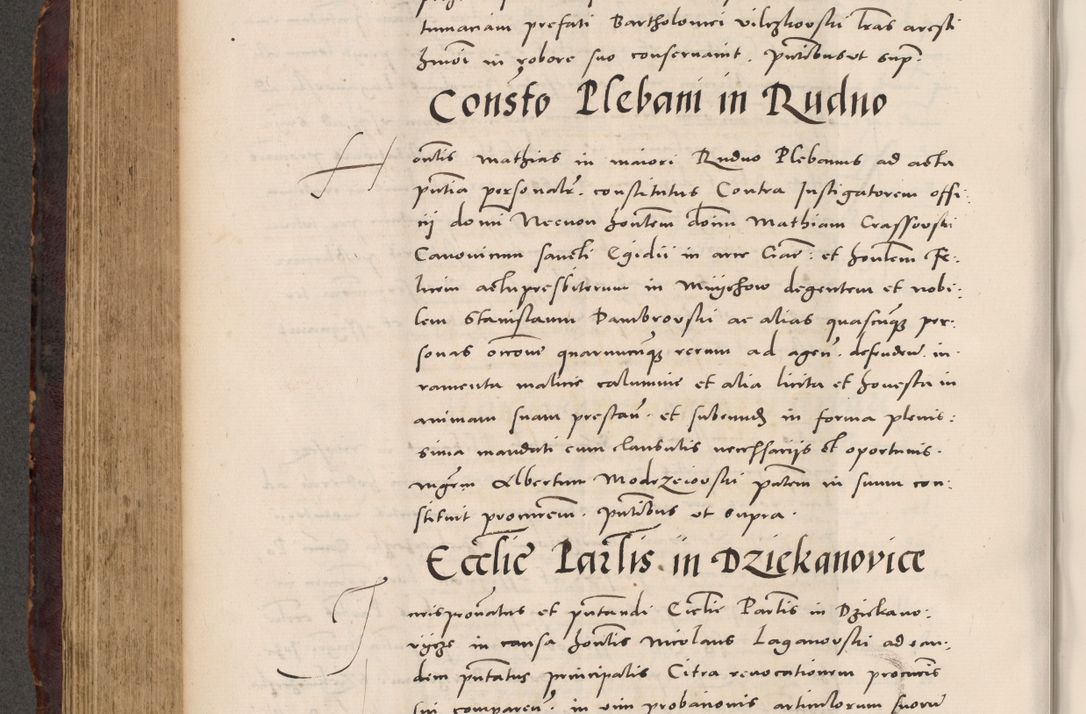 tumaciam prefati Bartholomei Vilczkovski lras aresti
hmoi in robore suo conservavit. pntibus ut sup.
Consto Plebani in Rudno
Honlis Mathias in maiori Rudno Plebanus ad acta
pntia personalr. constitutus Contra Instigatorem offi:
cij domi Necnon honlem dnm Mathiam Crassovski
Canonicum sancti Egidii in arce Crac: et honlem Fe:
licem archipresbiterum in degentem et nobi:
lem Stanislaum Dambrovski ac alias quascunqz per:
sonas occone quarumcunqz rerum ad agen. defenden. iu:
ramenta malicie calumnie et alia licita et honesta in
animam suam prestan. et subeund in forma plenis:
sima mandati cum clausulis necessarijs et oportunis.
mgrm Albertum Modrzeiovski pntem in suum con:
stituit procurem. pntibus ut supra.
Ecclie Parlis in Dziekanovice
Jurispronatus et pntandi Ecclie Parlis in Dziekano:
vycze in causa honlis Nicolaus Laganovski ad ean:
dem pntatus principalis Citra revocationem procuris
sui comparen. in vim probationis articulorum suoru